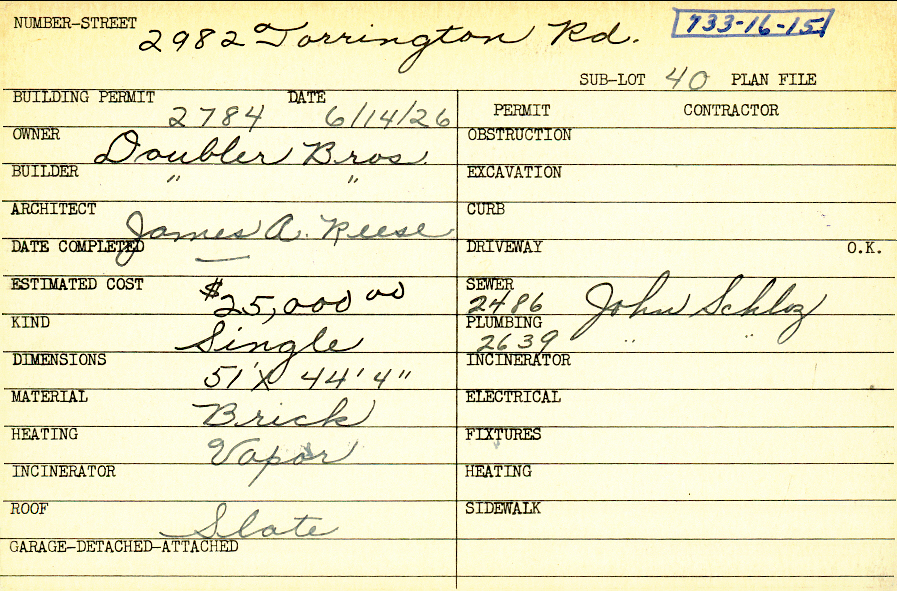 NUMBER-STREET 2982 Torrington Rd. 733-16-15
SUB-LOT 40 PLAN FILE
BUILDING PERMIT 2784 DATE 6/14/26
PERMIT CONTRACTOR
OWNER Doubler Bros.
OBSTRUCTION
BUILDER " "
EXCAVATION
ARCHITECT James A. Reese
CURB
DATE COMPLETED —
DRIVEWAY O.K.
ESTIMATED COST $25,000 00
SEWER 2486 John Schloz
KIND Single
PLUMBING 2639 " "
DIMENSIONS 51' X 44' 4"
INCINERATOR
MATERIAL Brick
ELECTRICAL
HEATING Vapor
FIXTURES
INCINERATOR
HEATING
ROOF Slate
SIDEWALK
GARAGE-DETACHED-ATTACHED